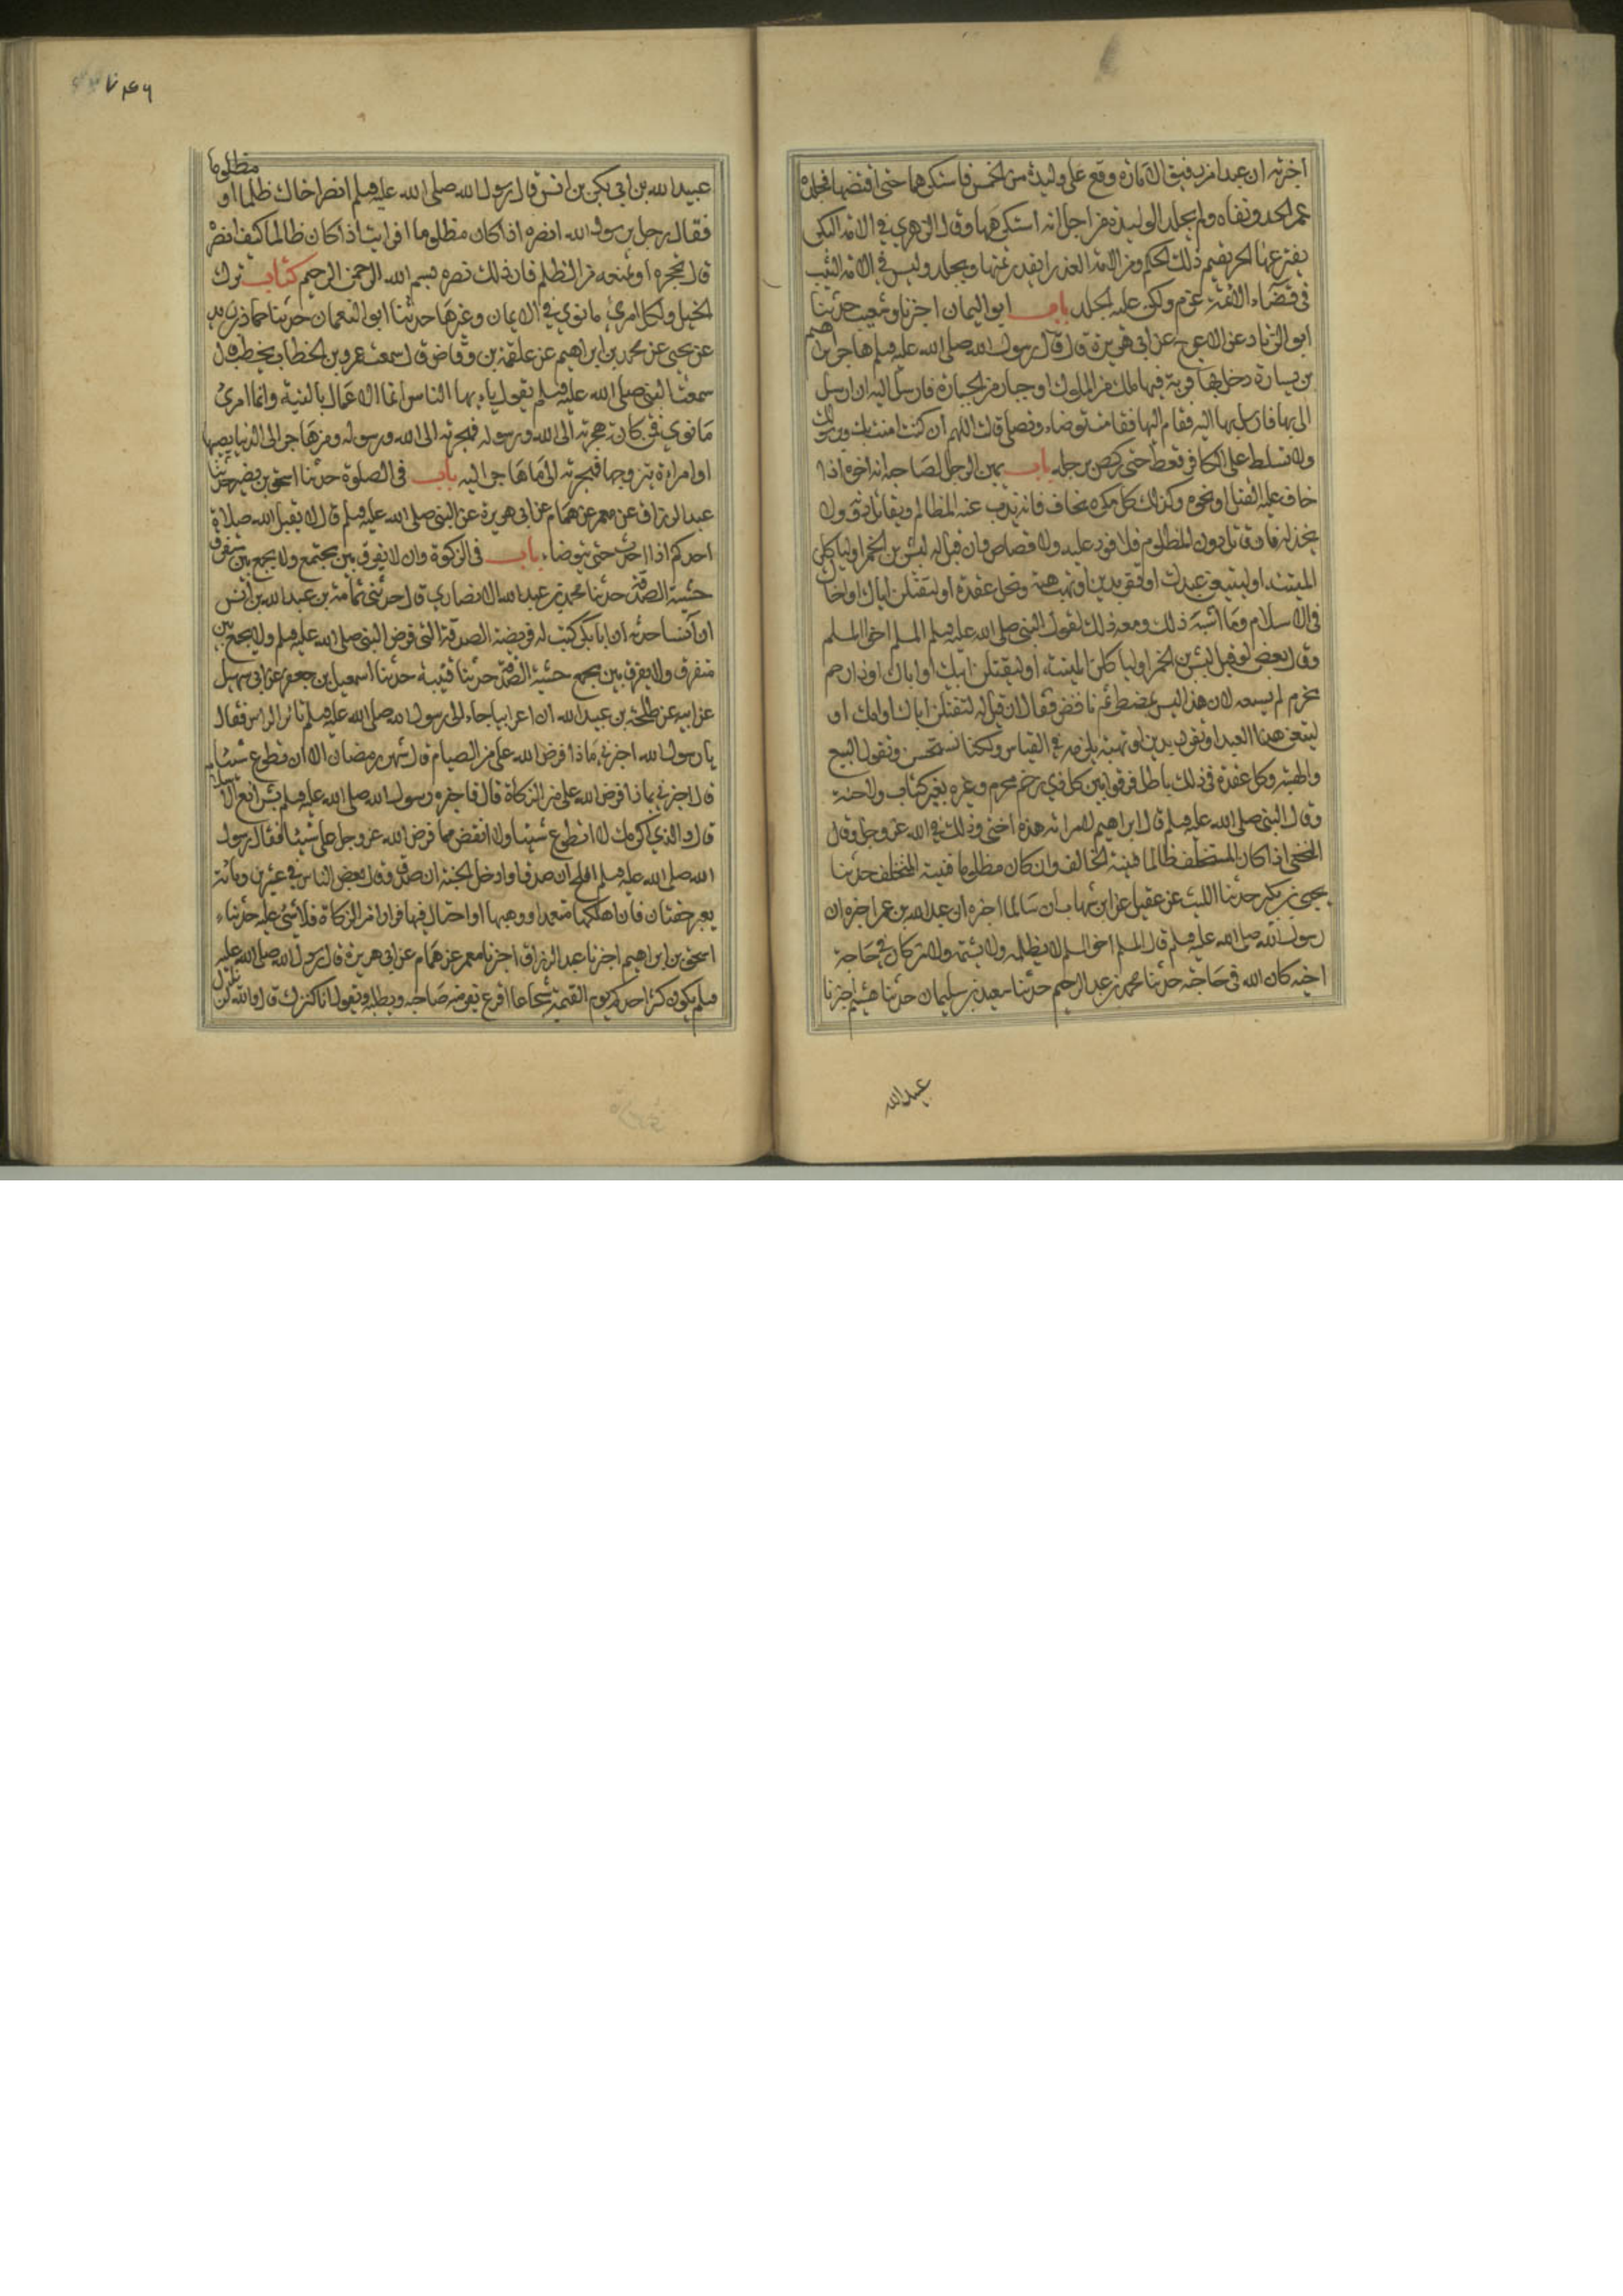 اخبرته ان عبدا من رقيق الامارة وقع على وليدة من الخمس فاستكرهها حتى افتضها فجلده
عمر الحد ونفاه ولم يجلد الوليدة من اجل انه استكرهها وقال الزهري في الامة البكر
يفترعها الحر يقيم ذلك الحكم من الامة العذراء بقدر ثمنها ويجلد وليس في الامة الثيب
في قضاء الائمة غرم ولكن عليه الحد باب ابو اليمان اخبرنا شعيب حدثنا
ابو الزناد عن الاعرج عن ابي هريرة قال قال رسول الله صلى الله عليه وسلم هاجر ابراهيم
بسارة دخل بها قرية فيها ملك من الملوك او جبار من الجبابرة فارسل اليه ان ارسل
الي بها فارسل بها اليه فقام اليها فقامت توضاء وتصلي فقالت اللهم ان كنت امنت بك وبرسولك
ولا تسلط علي الكافر فغط حتى ركض برجله باب يمين الرجل لصاحبه انه اخوه اذا
خاف عليه القتل او نحوه وكذلك كل مكره يخاف فانه يذب عنه المظالم ويقاتل دونه ولا
يخذله فان قاتل دون المظلوم فلا قود عليه ولا قصاص وان قيل له لتشربن الخمر او لتاكلن
الميتة او لتبيعن عبدك او تقر بدين او تهب هبة وتحل عقدة او لتقتلن اباك او اخاك
في الاسلام وما اشبه ذلك وسعه ذلك لقول النبي صلى الله عليه وسلم المسلم اخو المسلم
وقال بعض لو قيل لتشربن الخمر او لتاكلن الميتة او ليقتلن ابنك او اباك او ذا رحم
محرم لم يسعه لان هذا ليس بمضطر ثم ناقض فقال ان قيل له لتقتلن اباك او ابنك او
لتبيعن هذا العبد او تقر بدين او تهبه يلزمه في القياس ولكنا نستحسن ونقول البيع
والهبة وكل عقدة في ذلك باطل فرقوا بين كل ذي رحم محرم وغيره بغير كتاب ولا سنة
وقال النبي صلى الله عليه وسلم قال ابراهيم لامراته هذه اختي وذلك في الله عز وجل وقال
النخعي اذا كان المستحلف ظالما فنية الحالف وان كان مظلوما فنية المستحلف حدثنا
يحيى بن بكير حدثنا الليث عن عقيل عن ابن شهاب ان سالما اخبره ان عبد الله بن عمر اخبره ان
رسول الله صلى الله عليه وسلم قال المسلم اخو المسلم لا يظلمه ولا يسلمه ومن كان في حاجة
اخيه كان الله في حاجته حدثنا محمد بن عبد الرحيم حدثنا سعيد بن سليمان حدثنا هشيم اخبرنا
عبيد الله
عبيد الله بن ابي بكر بن انس قال رسول الله صلى الله عليه وسلم انصر اخاك ظالما او مظلوما
فقال رجل يرسول الله انصره اذا كان مظلوما افرايت اذا كان ظالما كيف انصره
قال تحجزه او تمنعه من الظلم فان ذلك نصره بسم الله الرحمن الرحيم كتاب ترك
الحيل ولكل امرئ ما نوى في الايمان وغيرها حدثنا ابو النعمان حدثنا حماد بن زيد
عن يحيى عن محمد بن ابراهيم عن علقمة بن وقاص قال سمعت عمر بن الخطاب يخطب قال
سمعت النبي صلى الله عليه وسلم يقول يا ايها الناس انما الاعمال بالنية وانما لامرئ
ما نوى فمن كانت هجرته الى الله ورسوله فهجرته الى الله ورسوله ومن هاجر الى الدنيا يصيبها
او امراة يتزوجها فهجرته الى ما هاجر اليه باب في الصلوة حدثنا اسحق بن نصر حدثنا
عبد الرزاق عن معمر عن همام عن ابي هريرة عن النبي صلى الله عليه وسلم قال لا يقبل الله صلاة
احدكم اذا احدث حتى يتوضاء باب في الزكوة وان لا يفرق بين مجتمع ولا يجمع بين متفرق
خشية الصدقة حدثنا محمد بن عبد الله الانصاري قال حدثني ثمامة بن عبد الله بن انس
ان انسا حدثه ان ابا بكر كتب له فريضة الصدقة التي فرض النبي صلى الله عليه وسلم ولا يجمع بين
متفرق ولا يفرق بين مجمع خشية الصدقة حدثنا قتيبة حدثنا اسمعيل بن جعفر عن ابي سهيل
عن ابيه عن طلحة بن عبيد الله ان اعرابيا جاء الى رسول الله صلى الله عليه وسلم ثائر الراس فقال
يا رسول الله اخبرني ماذا فرض الله علي من الصيام قال شهر رمضان الا ان تطوع شيئا
قال اخبرني بماذا فرض الله علي من الزكاة قال فاخبره رسول الله صلى الله عليه وسلم بشرائع الاسلام
قال والذي اكرمك لا اتطوع شيئا ولا انقض مما فرض الله عز وجل علي شيئا فقال رسول
الله صلى الله عليه وسلم افلح ان صدق او ادخل الجنة ان صدق وقال بعض الناس في عشرين ومائة
بعير حقتان فان اهلكها متعمدا او وهبها او احتال فيها فرارا من الزكاة فلا شئ عليه حدثناء
اسحق بن ابراهيم اخبرنا عبد الرزاق اخبرنا معمر عن همام عن ابي هريرة قال رسول الله صلى الله عليه
وسلم يكون كنز احدكم يوم القيمة شجاعا اقرع يفر منه صاحبه ويطلبه ويقول انا كنزك قال والله لن يزال